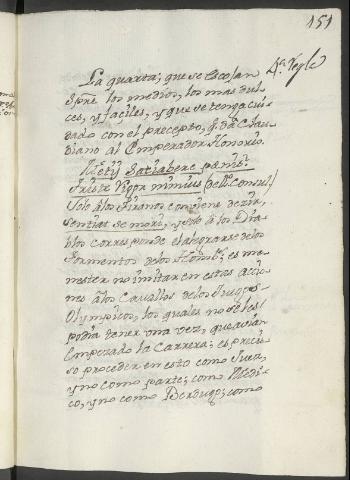 151
4ª Regla
La quarta; que se escojan
spre los medios, los mas dul-
ces, y faciles, y que se tenga cui-
dado con el precepto, q. da Clau-
diano al Emperador Honorio.
Metij satiabere pœnis?
Tristis rigor nimius (de 4. Consul.)
Solo à los Tiranos conviene dezir,
sentiat se mori, y solo à los Dia-
blos corresponde el alegrarse de los
tormentos de los Homb.s; es me-
nester no imitar en estas accio-
nes à los Cavallos de los Juegos
Olympicos, los quales no se les
podia tener una vez, que avian
empezado la Carrera; es preci-
so proceder en esto como Juez,
y no como parte; como Medi-
co, y no como Berdugo; como